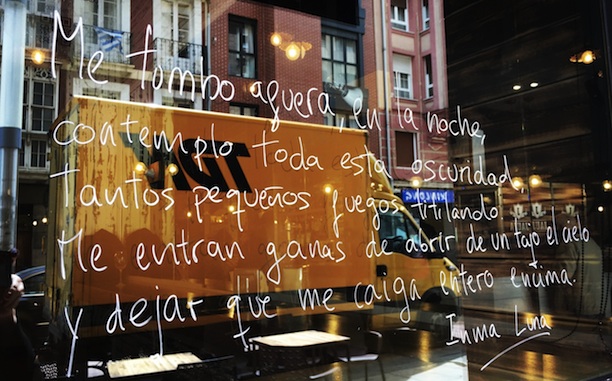 Me tumbo afuera, en la noche,
contemplo toda esta oscuridad,
Tantos pequeños fuegos titilando
Me entran ganas de abrir de un tajo el cielo
y dejar que me caiga entero encima.
Inma Luna